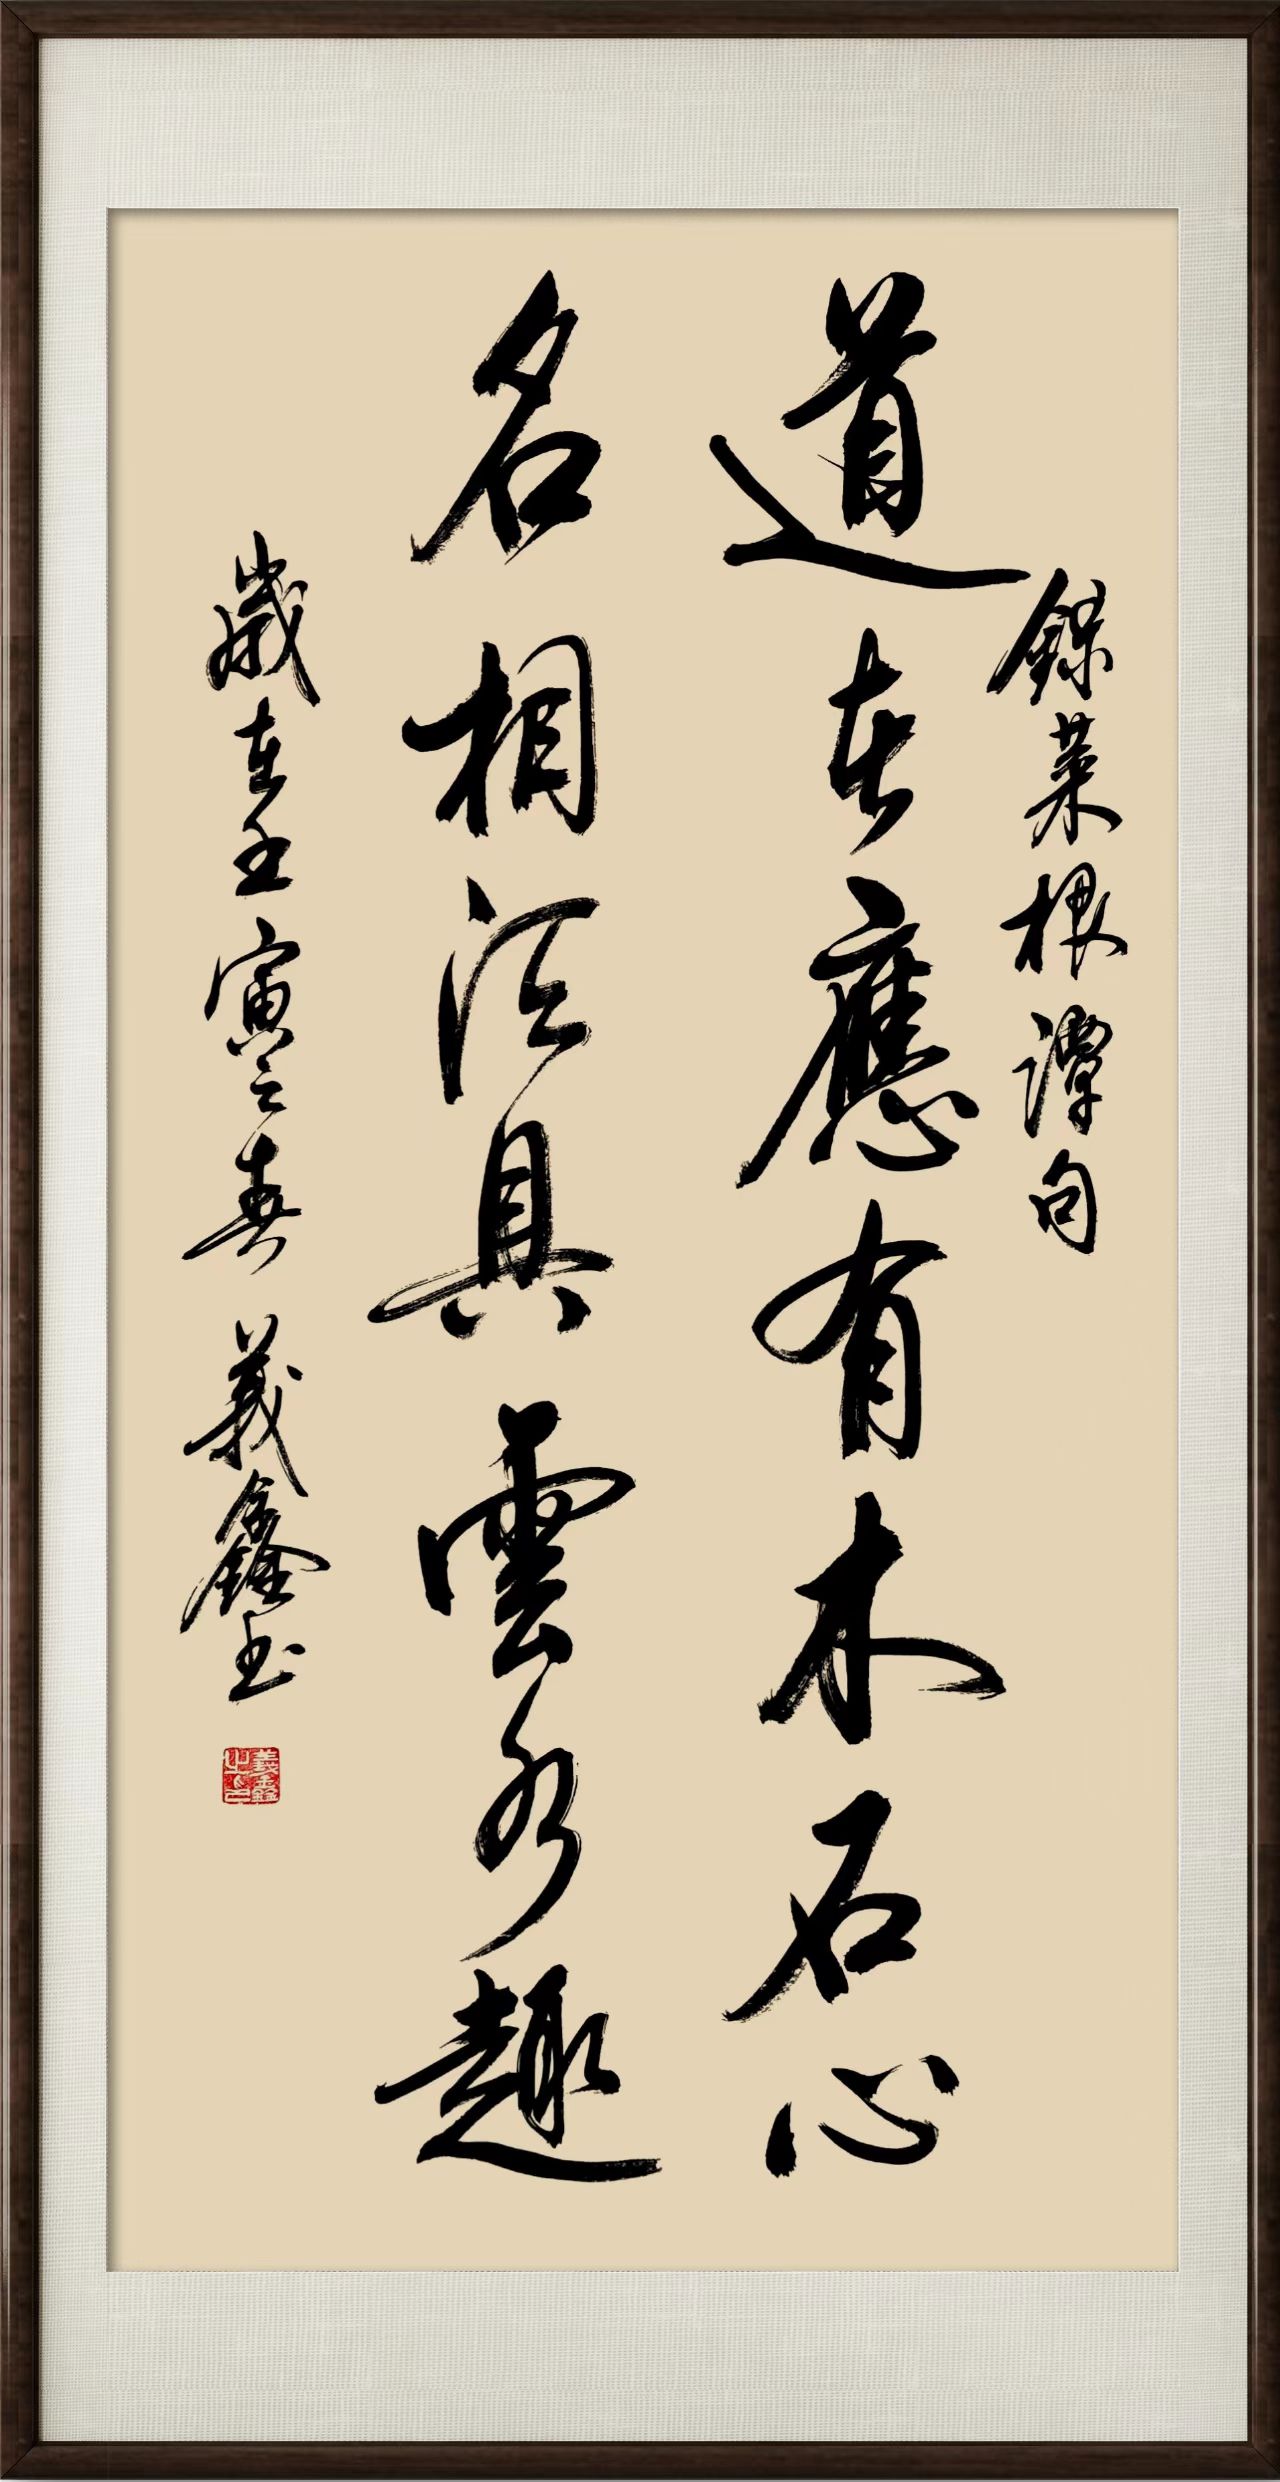 錄菜根譚句
道在應有木石心
名相須具雲水趣
歲在壬寅之春 義鑫书
義鑫之印